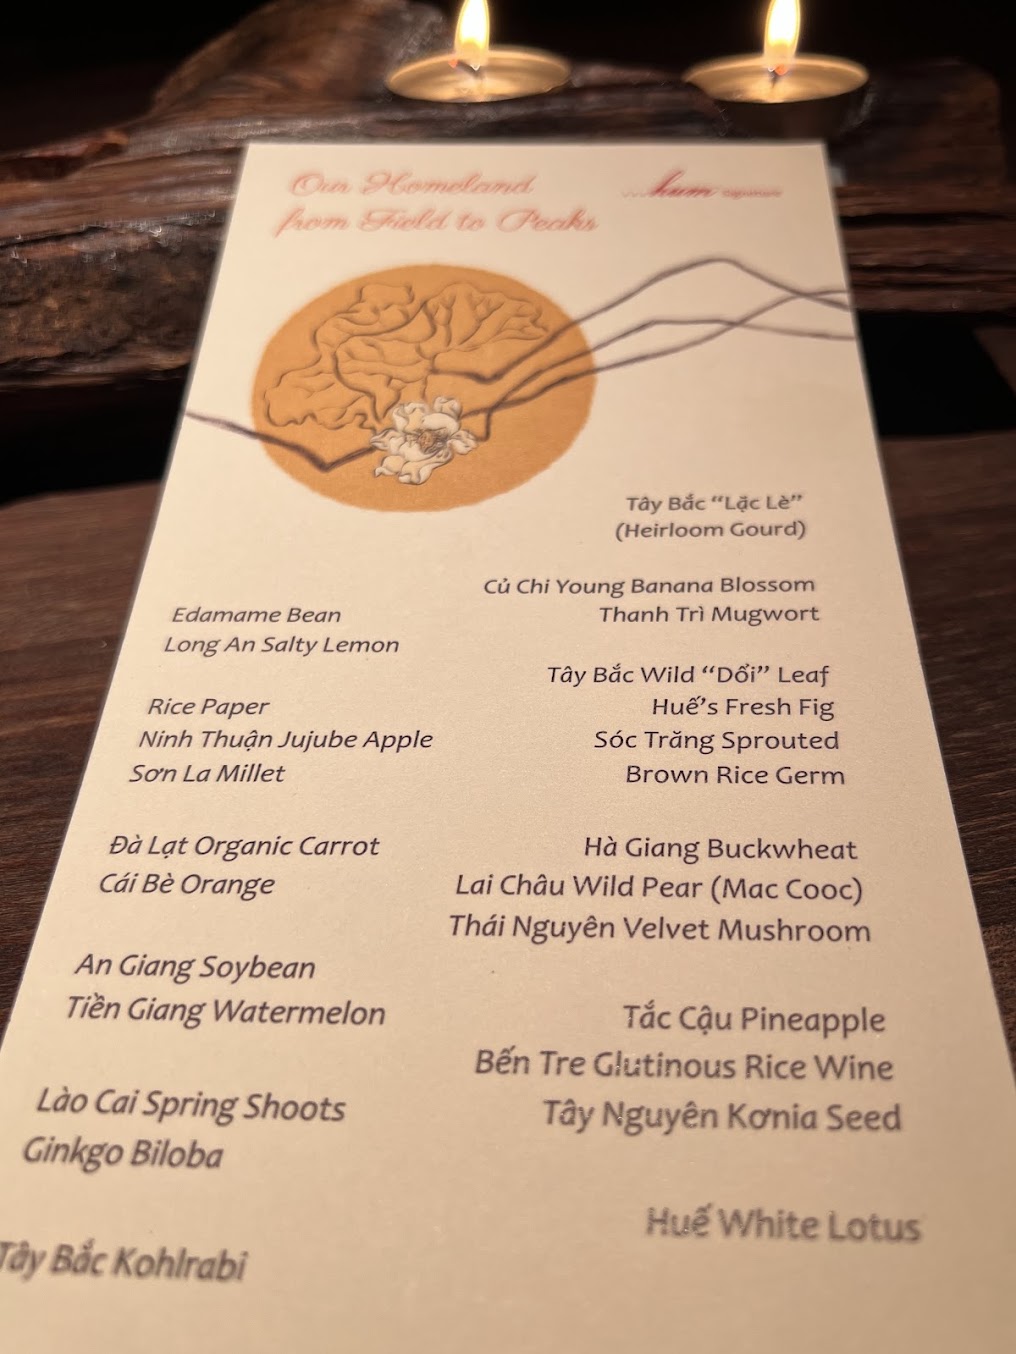 Our Homeland
from Field to Peaks
...hum signature
Edamame Bean
Long An Salty Lemon
Rice Paper
Ninh Thuận Jujube Apple
Sơn La Millet
Đà Lạt Organic Carrot
Cái Bè Orange
An Giang Soybean
Tiền Giang Watermelon
Lào Cai Spring Shoots
Ginkgo Biloba
Tây Bắc Kohlrabi
Tây Bắc “Lặc Lè”
(Heirloom Gourd)
Củ Chi Young Banana Blossom
Thanh Trì Mugwort
Tây Bắc Wild “Dổi” Leaf
Huế’s Fresh Fig
Sóc Trăng Sprouted
Brown Rice Germ
Hà Giang Buckwheat
Lai Châu Wild Pear (Mac Cooc)
Thái Nguyên Velvet Mushroom
Tắc Cậu Pineapple
Bến Tre Glutinous Rice Wine
Tây Nguyên Kơnia Seed
Huế White Lotus